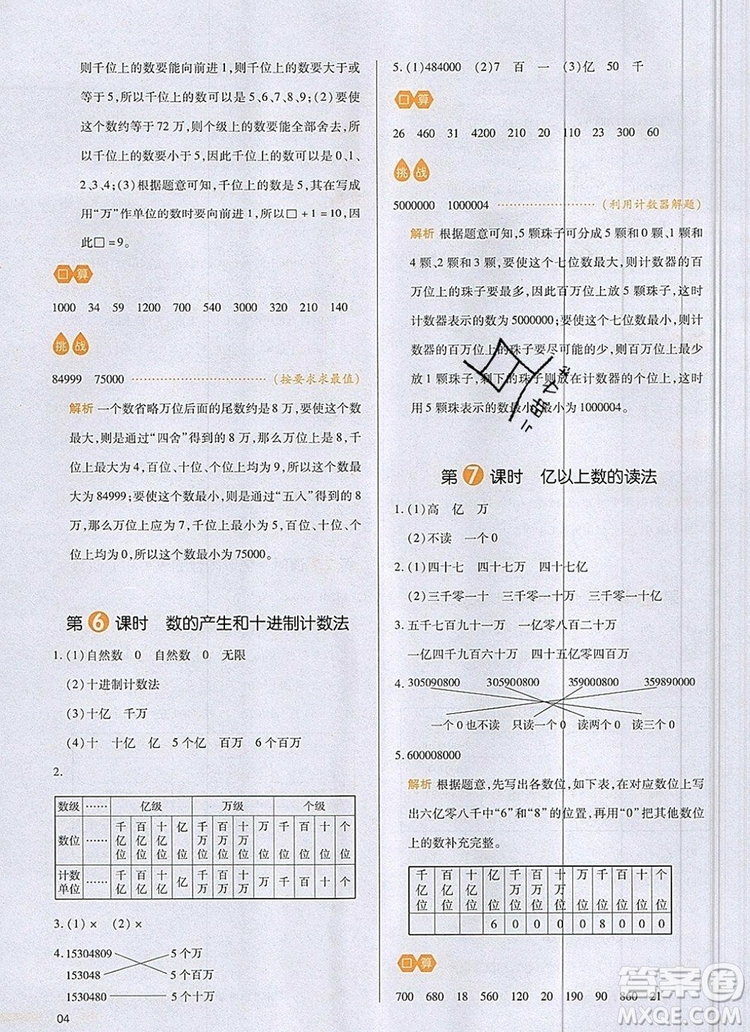 则千位上的数要能向前进1,所以千位上的数要大于或
等于5,所以千位上的数可以是5、6、7、8、9;(2)要使
这个数约等于72万,则个级上的数要能全部舍去,所
以千位上的数要小于5,因此千位上的数可以是0、1、
2、3、4;(3)根据题意可知,千位上是9,因此在其写成
用“万”作单位的数时要向前进1,所以□+1=10,因
此□=9。
口算
1000 34 59 1200 700 540 1000 320 210 140
挑战
84999 75000 ……………………(按要求求最值)
解析 一个数省略万位后面的尾数约是8万,要使这个数
最大,则应是通过“四舍”得到的8万,那么万位为8,千
位上最大为4,其余各位上的数最大为9,所以这个数最大
为84999;要使这个数最小,则应是通过“五入”得到的8
万,那么万位应为7,千位上最小为5,其余各位上的数最
小为0,所以这个数最小为75000。
第6课时 数的产生和十进制计数法
1.(1)自然数 0 自然数 0 无限
(2)十进制计数法
(3)十亿 千万
(4)十 十亿 亿 5个亿 百万 5个百万
2.
数级 …… 亿级 万级 个级
数位 …… 千亿位 百亿位 十亿位 亿位 千万位 百万位 十万位 万位 千位 百位 十位 个位
计数单位 …… 千亿 百亿 十亿 亿 千万 百万 十万 万 千 百 十 个
3.(1)× (2)×
4.15304809 5个万
153048 5个百万
1530480 5个十万
04
5.(1)484000 (2)7 百 一 (3)亿 50 千
口算
26 460 31 4200 210 40 23 300 60
挑战
5000000 1000004 ……………………(利用计数器解题)
解析 根据题意可知,5颗珠子可分成5颗和0颗、1颗
和4颗、2颗和3颗,要使这个七位数最大,则计数器的百
万位上的珠子要最多,因此百万位上放5颗珠子,这时
计数器表示的数是5000000;要使这个七位数最小,则
计数器的百万位上的珠子要尽可能的少,所以百万位上
放1颗珠子,剩下的珠子则放在计数器个位上,这时
用5颗珠表示的数最小,最小为1000004。
第7课时 亿以上数的读法
1.(1)高 亿 万
(2)不读 一个0
2.(1)四十七 四十七万 四十七亿
(2)三千零一十 三千零一十万 三千零一十亿
3.五千七百九十一万 五千零九亿八百二十万
一亿四千九百六十万 一百五十一亿
4.305090800 305900800 359000800 359890000
一个0也不读 只读一个0 读两个0 读三个0
5.600008000
解析 根据题意,先写出各数位,如下表,在对应数位上写
出六亿零八千中“6”和“8”的位置,再用“0”把其他数位
上的数补充完整。
千亿位 百亿位 十亿位 亿位 千万位 百万位 十万位 万位 千位 百位 十位 个位
6 0 0 0 0 8 0 0 0
口算
700 680 18 560 2 31 92 90 860 21
答案圈
MXQE.COM